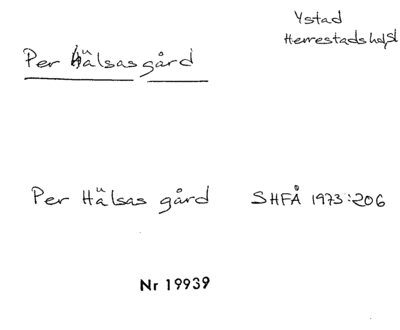 Ystad
Herrestads hd
Per Hälsas gård
Per Hälsas gård SHFÅ 1973:206
Nr 19939